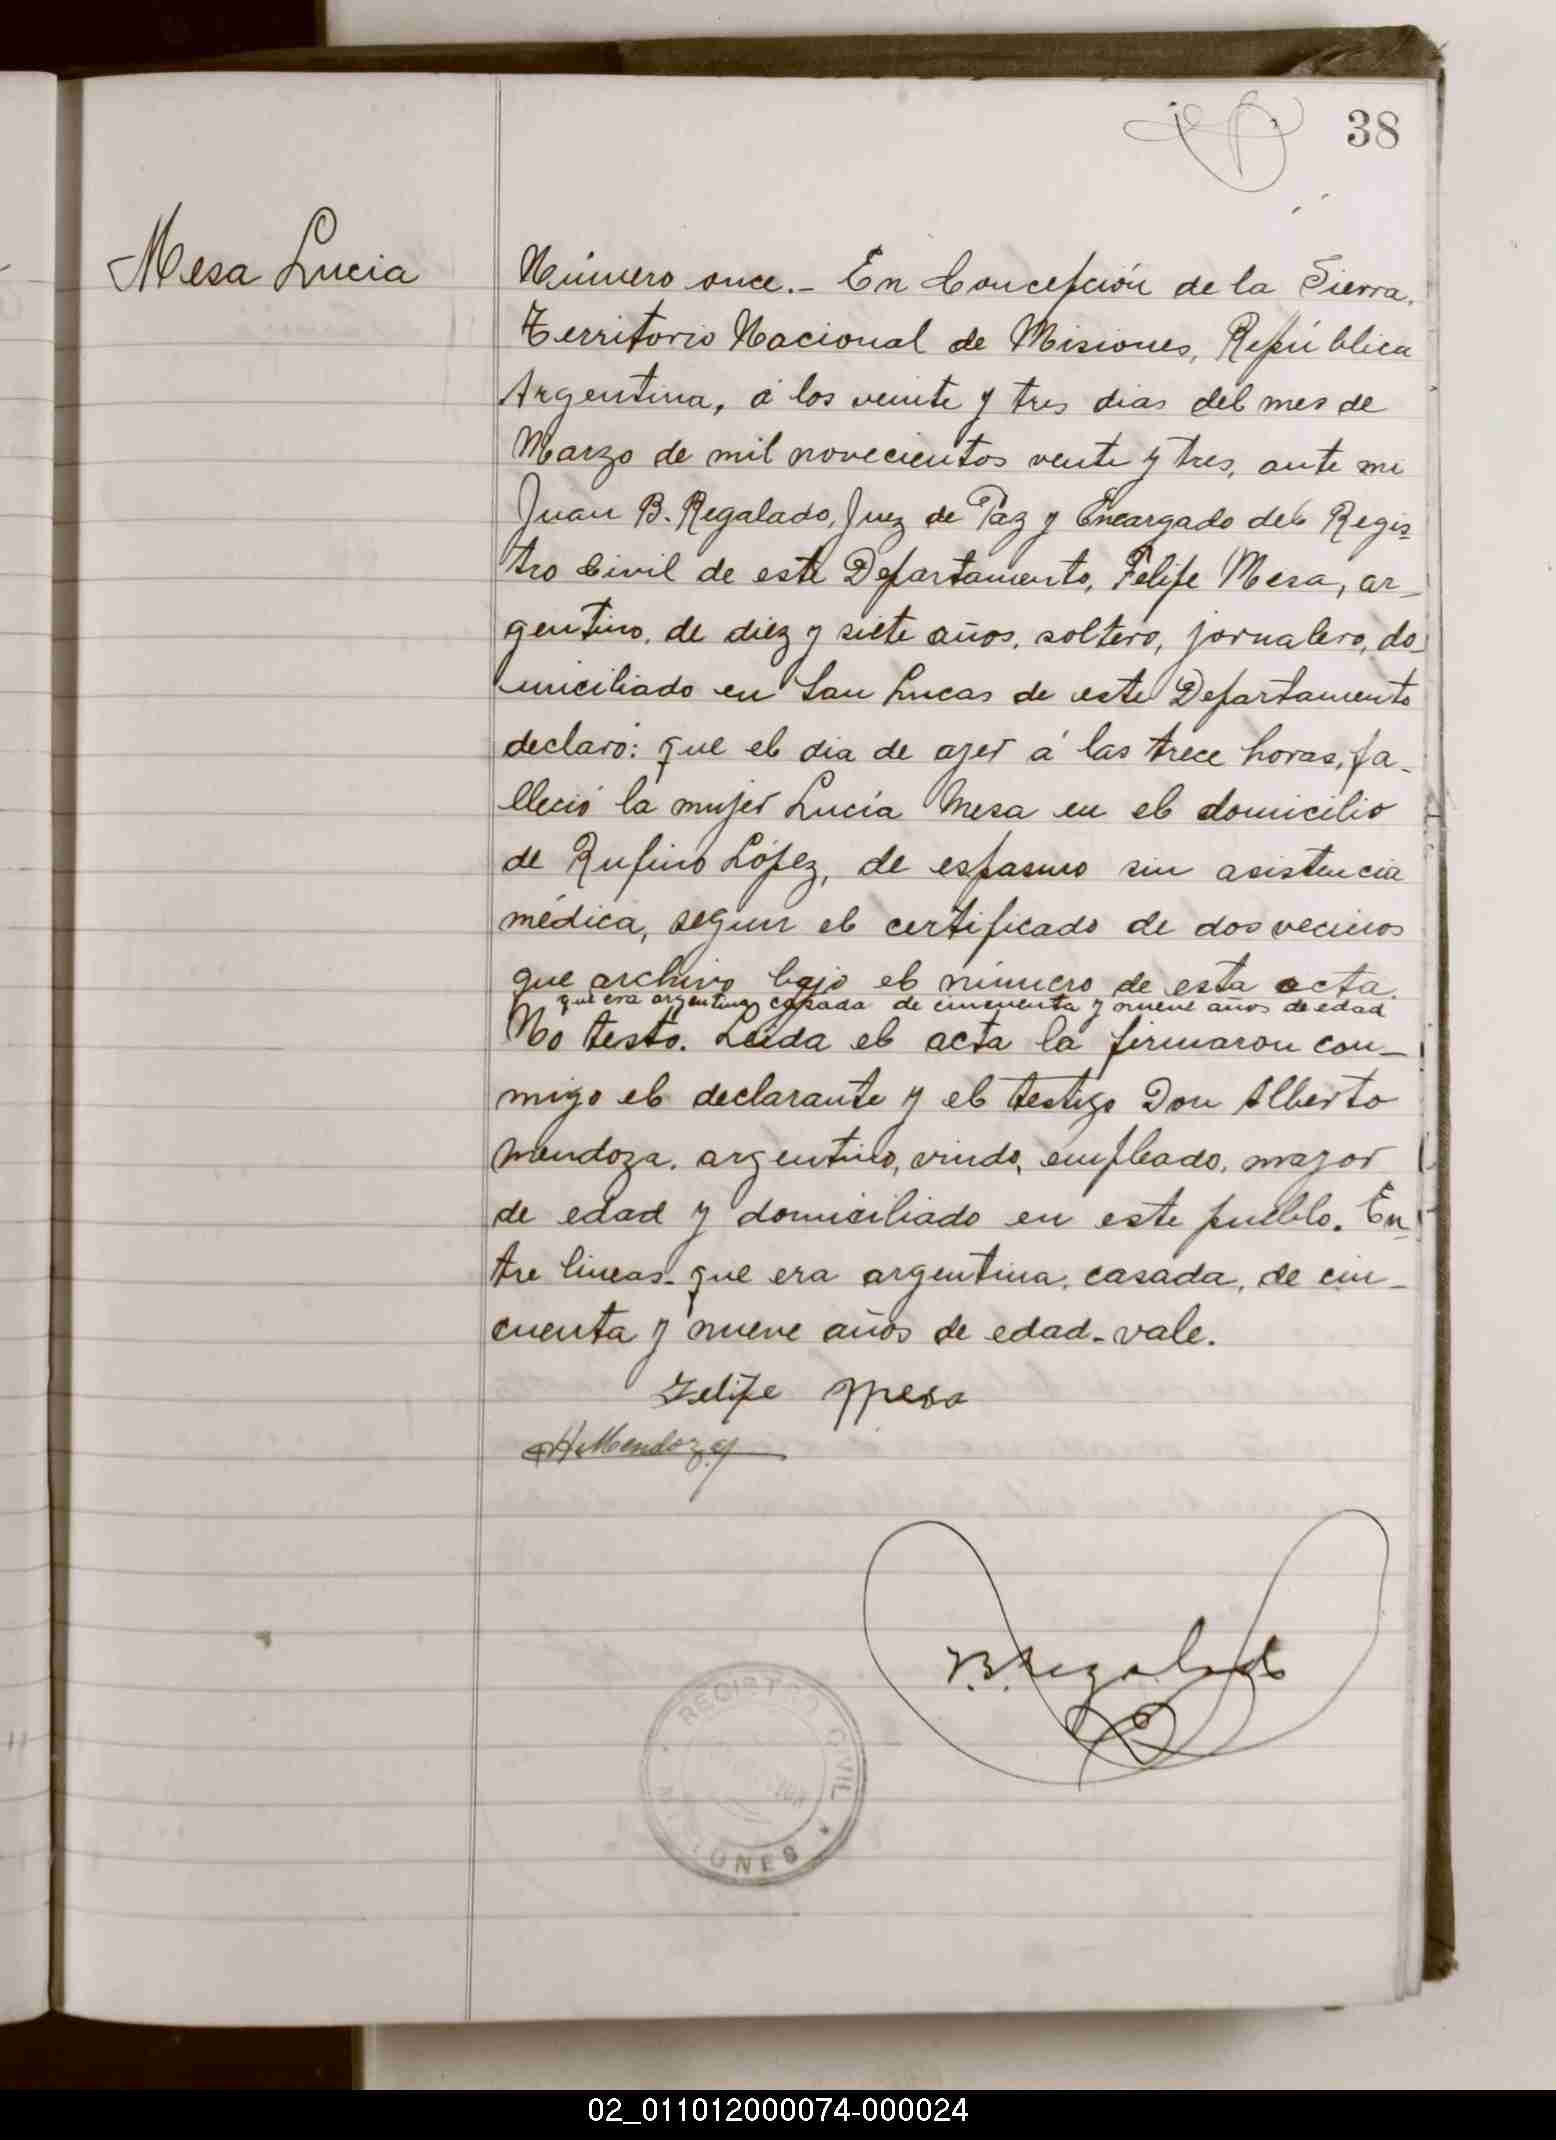 38
Mesa Lucia
Número once.- En Concepción de la Sierra,
Territorio Nacional de Misiones, República
Argentina, á los veinte y tres dias del mes de
Marzo de mil novecientos vente y tres, ante mi
Juan B. Regalado, Juez de Paz y Encargado del Regis-
tro Civil de este Departamento, Felipe Mesa, ar-
gentino, de diez y siete años, soltero, jornalero, do-
miciliado en San Lucas de este Departamento
declaró: que el dia de ayer á las trece horas, fa-
lleció la mujer Lucía Mesa en el domicilio
de Rufino López, de espasmo sin asistencia
médica, segun el certificado de dos vecinos
que archivo bajo el número de esta acta.
que era argentina, casada de cincuenta y nueve años de edad
No testó. Leida el acta la firmaron con-
migo el declarante y el testigo Don Alberto
Mendoza, argentino, viudo, empleado, mayor
de edad y domiciliado en este pueblo. En-
tre lineas- que era argentina, casada, de cin-
cuenta y nueve años de edad- vale.
Felipe Mesa
A Mendoza
J.B. Regalado
REGISTRO CIVIL
MISIONES
02_011012000074-000024